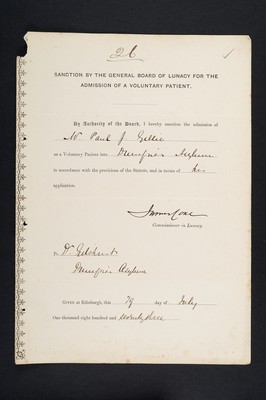 26
SANCTION BY THE GENERAL BOARD OF LUNACY FOR THE
ADMISSION OF A VOLUNTARY PATIENT.
By Authority of the Board, I hereby sanction the admission of
Paul J.
as a Voluntary Patient into Dumfries Asylum
in accordance with the provisions of the Statute, and in terms of his
application.
James Coxe
Commissioner in Lunacy.
To Dr Gilchrist
Dumfries Asylum
GIVEN at Edinburgh, this day of July
One thousand eight hundred and seventy three